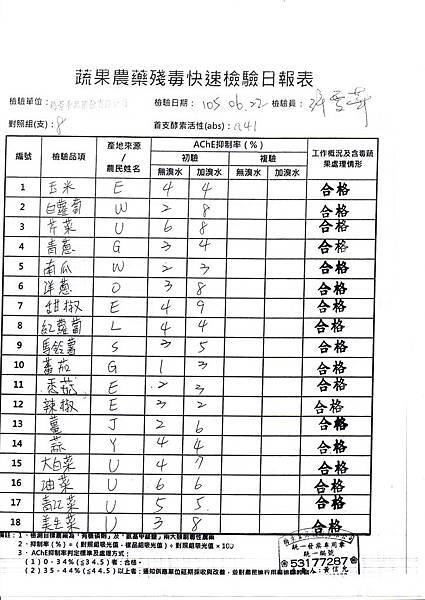 蔬果農藥殘毒快速檢驗日報表
檢驗單位：
檢驗日期： 105.06.22 檢驗員：
對照組(支)：8 首支酵素活性(abs)：0.41
編號 檢驗品項 產地來源/農民姓名 AChE抑制率(%) 工作概況及含毒蔬果處理情形
初驗 複驗
無溴水 加溴水 無溴水 加溴水
1 玉米 E 4 4 合格
2 白蘿蔔 W 2 8 合格
3 芹菜 U 6 8 合格
4 青蔥 G 3 4 合格
5 南瓜 W 2 3 合格
6 洋蔥 O 3 8 合格
7 甜椒 E 4 9 合格
8 紅蘿蔔 L 4 4 合格
9 馬鈴薯 S 3 5 合格
10 蕃茄 G 1 3 合格
11 香菇 E 2 3 合格
12 辣椒 E 3 2 合格
13 薑 J 2 6 合格
14 蒜 Y 4 4 合格
15 大白菜 U 4 7 合格
16 油菜 U 6 6 合格
17 青江菜 U 5 5 合格
18 美生菜 U 3 8 合格
備註：1、檢測目標農藥為「有機磷劑」及「氨基甲酸鹽」兩大類劇毒性農藥
2、抑制率(%)＝(對照組吸光值-樣品組吸光值)÷對照組吸光值×100
3、AChE抑制率判定標準及處理方式：
(1) 0-34%(≦34.5)者：合格
(2) 35-44%(≦44.5)以上者：通知供應單位延期採收與改善，並對農民進行用藥
統一發票專用章
統一編號
53177287